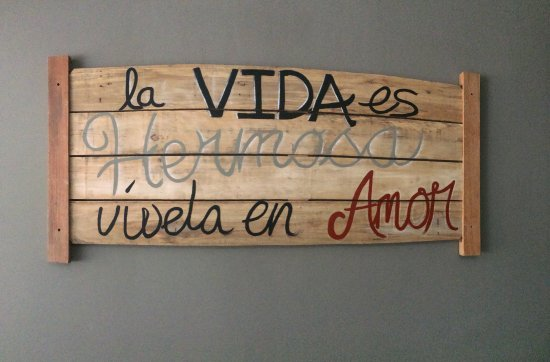 la VIDA es
Hermosa
vívela en Amor